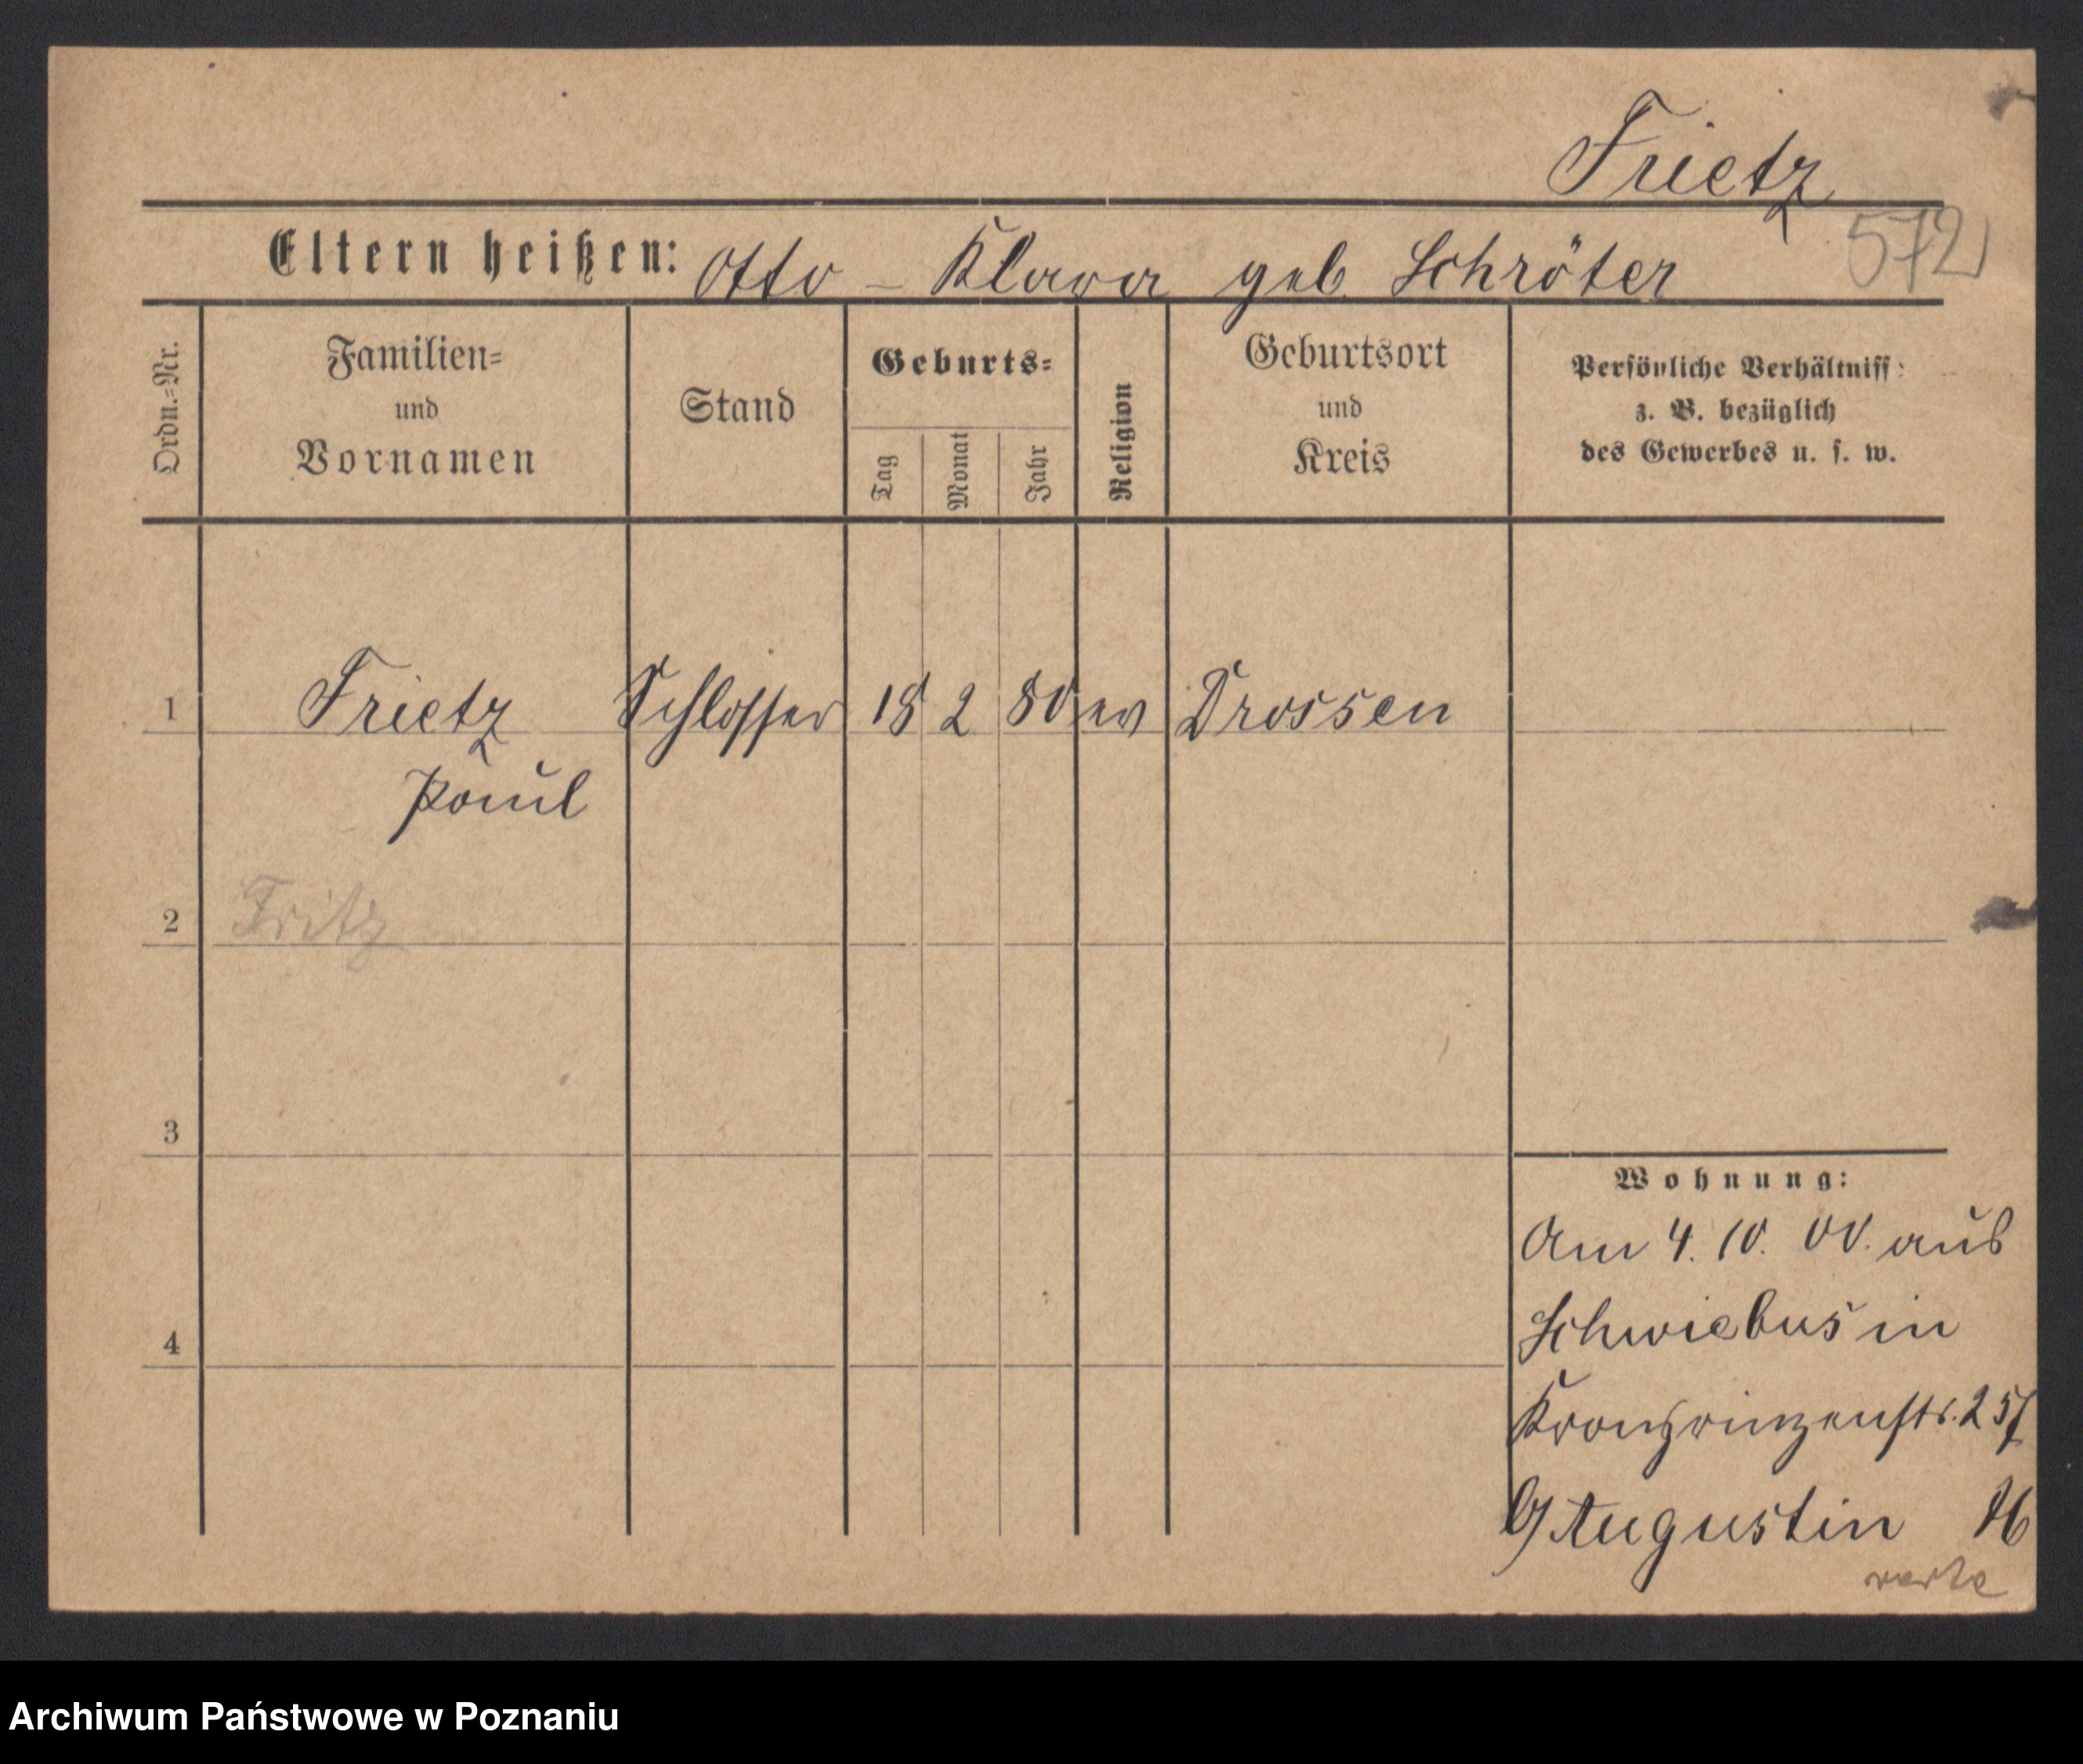 Frietz
572
Eltern heißen: Otto – Klara geb. Schröter
Ordn.=Nr.
Familien=
und
Vornamen
Stand
Geburts=
Tag
Monat
Jahr
Religion
Geburtsort
und
Kreis
Persönliche Verhältniss:
z. B. bezüglich
des Gewerbes u. s. w.
1 Frietz Schlosser 18 2 80 ev Drossen
Paul
2 Fritz
3
4
Wohnung:
Am 4. 10. 00. aus
Schwiebus in
Kronprinzenstr. 257
b/ Augustin
verte
Archiwum Państwowe w Poznaniu